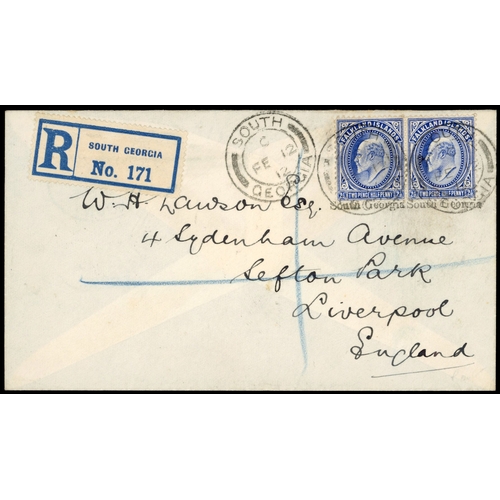 R
SOUTH GEORGIA
No. 171
SOUTH
C
FE 12
12
GEORGIA
FALKLAND ISLANDS
FALKLAND ISLANDS
TWO PENCE HALFPENNY
TWO PENCE HALFPENNY
South Georgia South Georgia
W. H. Lawson Esq.
4 Sydenham Avenue
Sefton Park
Liverpool
England